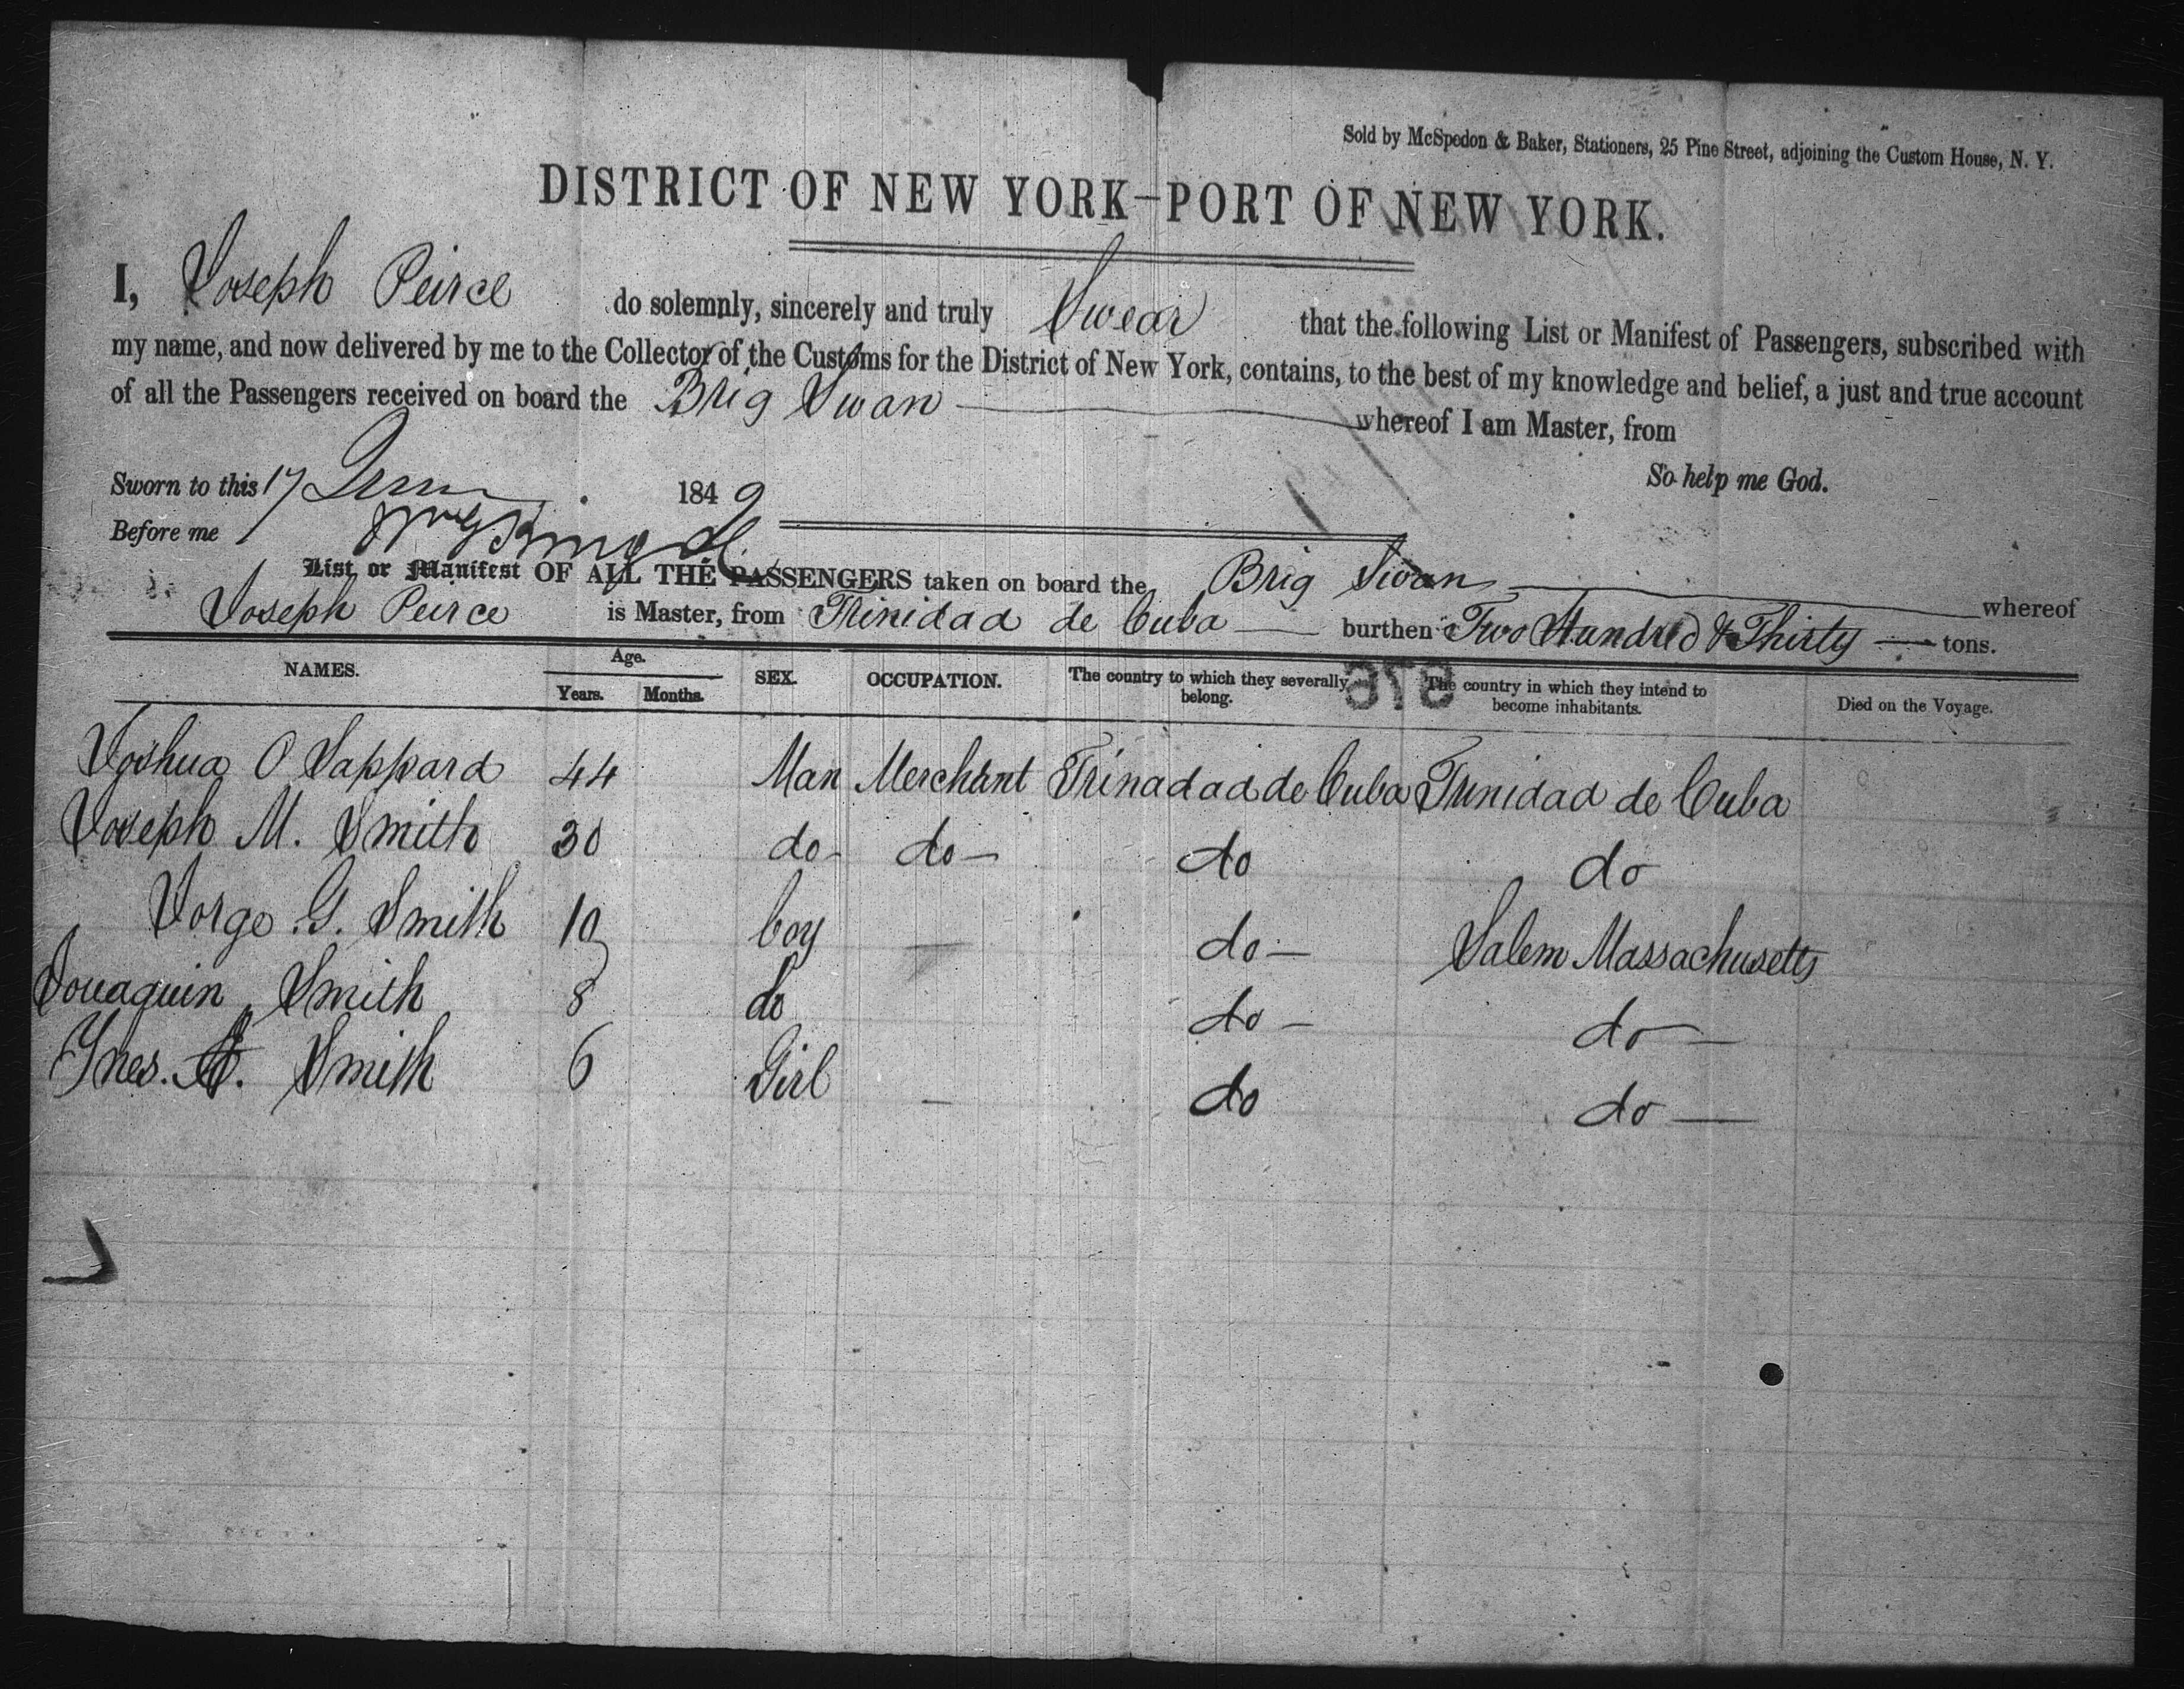 Sold by McSpedon & Baker, Stationers, 25 Pine Street, adjoining the Custom House, N. Y.
DISTRICT OF NEW YORK—PORT OF NEW YORK.
I, Joseph Peirce do solemnly, sincerely and truly Swear that the following List or Manifest of Passengers, subscribed with
my name, and now delivered by me to the Collector of the Customs for the District of New York, contains, to the best of my knowledge and belief, a just and true account
of all the Passengers received on board the Brig Swan whereof I am Master, from
So help me God.
Sworn to this 17 1849
Before me
List or Manifest OF ALL THE PASSENGERS taken on board the Brig Swan whereof
Joseph Peirce is Master, from Trinidad de Cuba burthen Two Hundred & Thirty tons.
NAMES. Age. Years. Months. SEX. OCCUPATION. The country to which they severally belong. The country in which they intend to become inhabitants. Died on the Voyage.
976
Joshua O Sappard 44 Man Merchant Trinadad de Cuba Trinidad de Cuba
Joseph M. Smith 30 do do do do
Jorge G. Smith 10 boy — do — Salem Massachusetts
Jouaquin Smith 8 do do — do —
Ynes. A. Smith 6 Girl — do do —